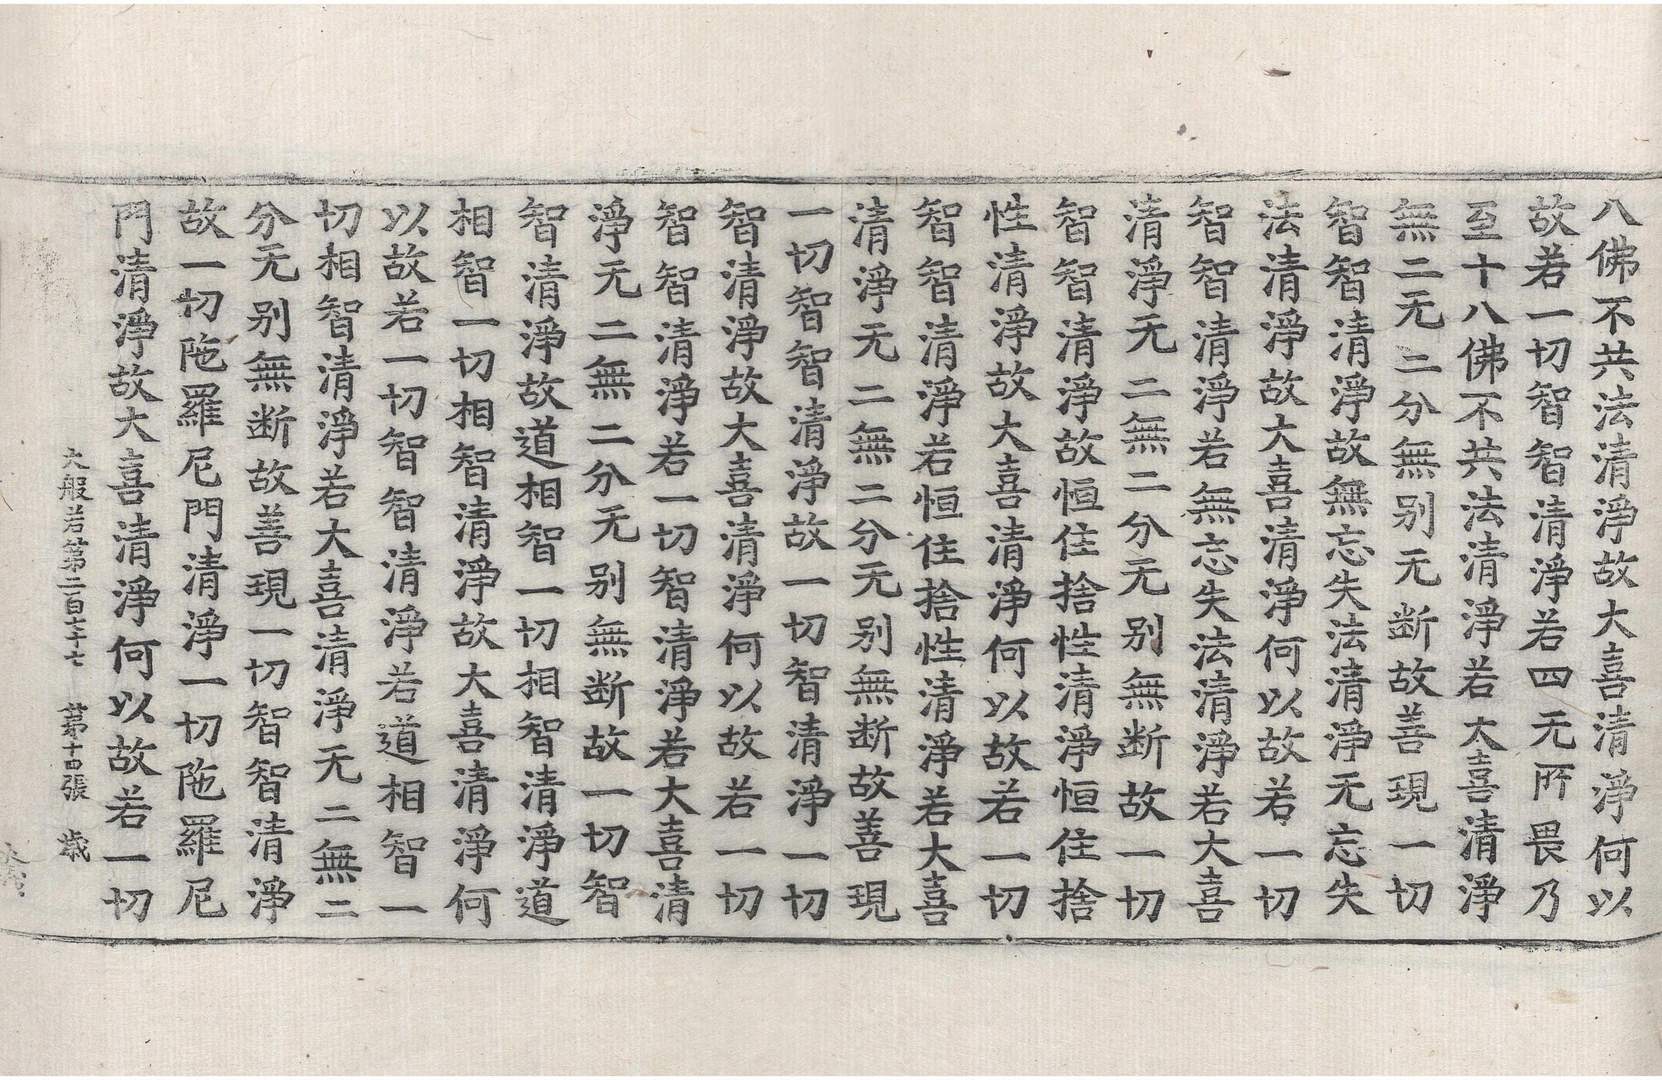 八佛不共法清淨故大喜清淨何以
故若一切智智清淨若四无所畏乃
至十八佛不共法清淨若大喜清淨
無二无二分無别无断故善現一切
智智清淨故無忘失法清淨无忘失
法清淨故大喜清淨何以故若一切
智智清淨若無忘失法清淨若大喜
清淨无二無二分无别無断故一切
智智清淨故恒住捨性清淨恒住捨
性清淨故大喜清淨何以故若一切
智智清淨若恒住捨性清淨若大喜
清淨无二無二分无别無断故善現
一切智智清淨故一切智清淨一切
智清淨故大喜清淨何以故若一切
智智清淨若一切智清淨若大喜清
淨无二無二分无别無断故一切智
智清淨故道相智一切相智清淨道
相智一切相智清淨故大喜清淨何
以故若一切智智清淨若道相智一
切相智清淨若大喜清淨无二無二
分无别無断故善現一切智智清淨
故一切陁羅尼門清淨一切陁羅尼
門清淨故大喜清淨何以故若一切
大般若第二百七十七 第十四張 歳